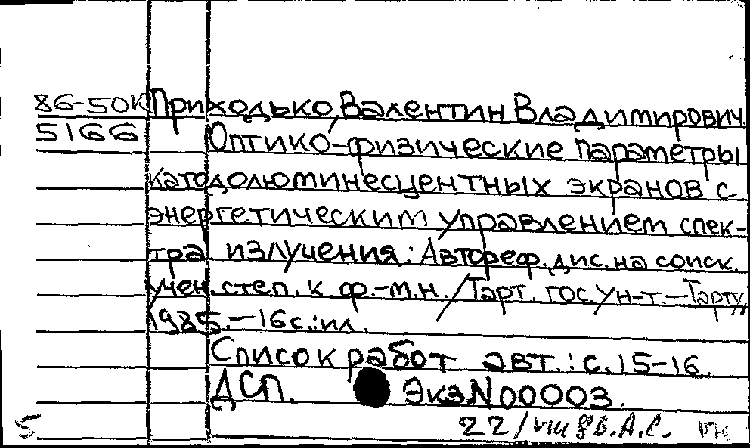 86-50К Приходько, Валентин Владимирович.
5166 Оптико-физические параметры
катодолюминесцентных экранов с
энергетическим управлением спек-
тра излучения: Автореф. дис. на соиск.
учен. степ. к. ф.-м.н. / Тарт. гос. ун-т.—Тарту,
1985.—16с.:ил.
Список работ авт.: с. 15-16.
ДСП. Экз N 00003.
5 22/VIII